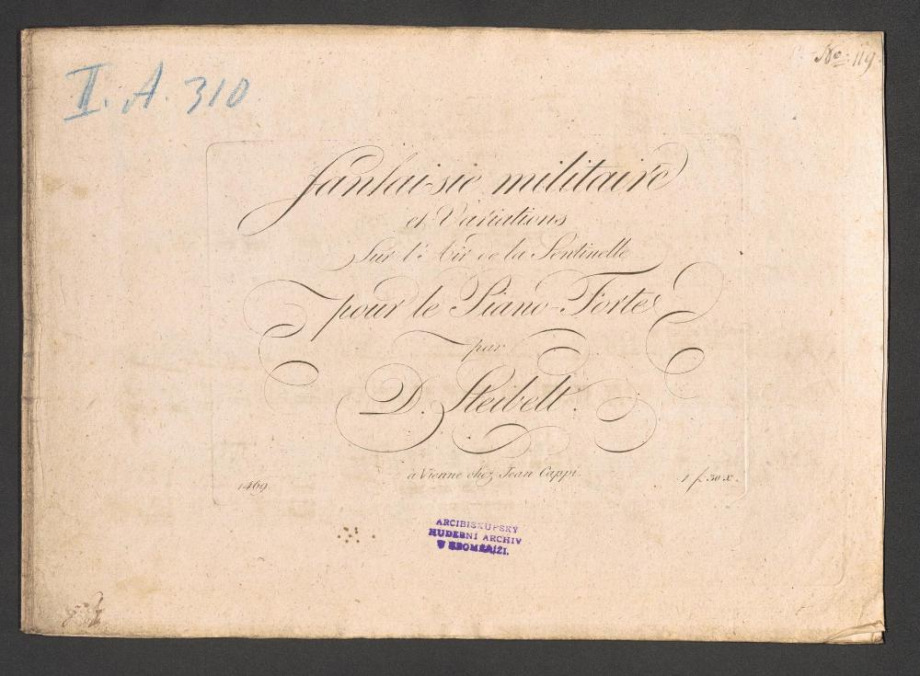 II. A. 310
No. 119.
Fantaisie militaire
et Variations
Sur l'Air de la Sentinelle
pour le Piano-Forte
par
D. Steibelt.
à Vienne chez Jean Cappi.
1469
1 f. 30 x.
ARCIBISKUPSKÝ
HUDEBNÍ ARCHIV
V KROMĚŘÍŽI.